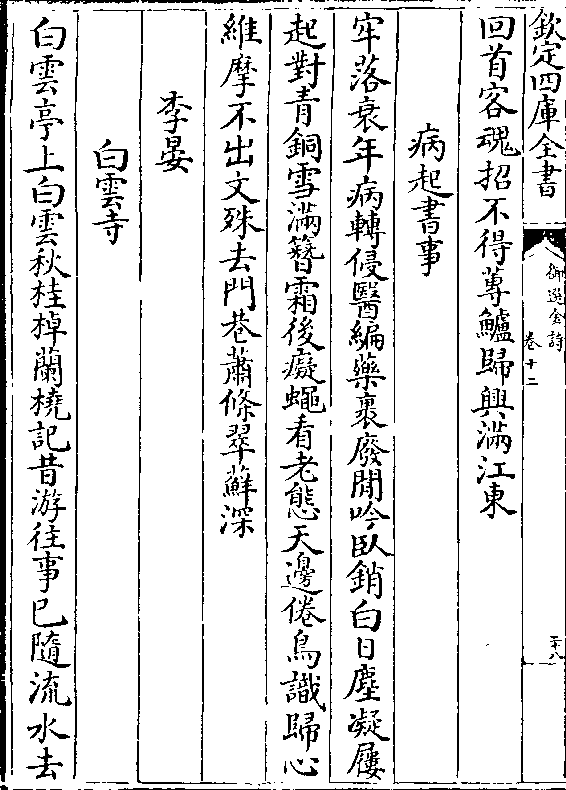 欽定四庫全書
御選金詩
卷十二
二十八
回首客魂招不得蓴鱸歸興滿江東
病起書事
牢落衰年病轉侵醫編藥裹廢閒吟臥銷白日塵凝屨
起對青銅雪滿簪霜後癡蠅看老態天邊倦鳥識歸心
維摩不出文殊去門巷蕭條翠蘚深
李晏
白雲寺
白雲亭上白雲秋桂棹蘭橈記昔游往事已隨流水去